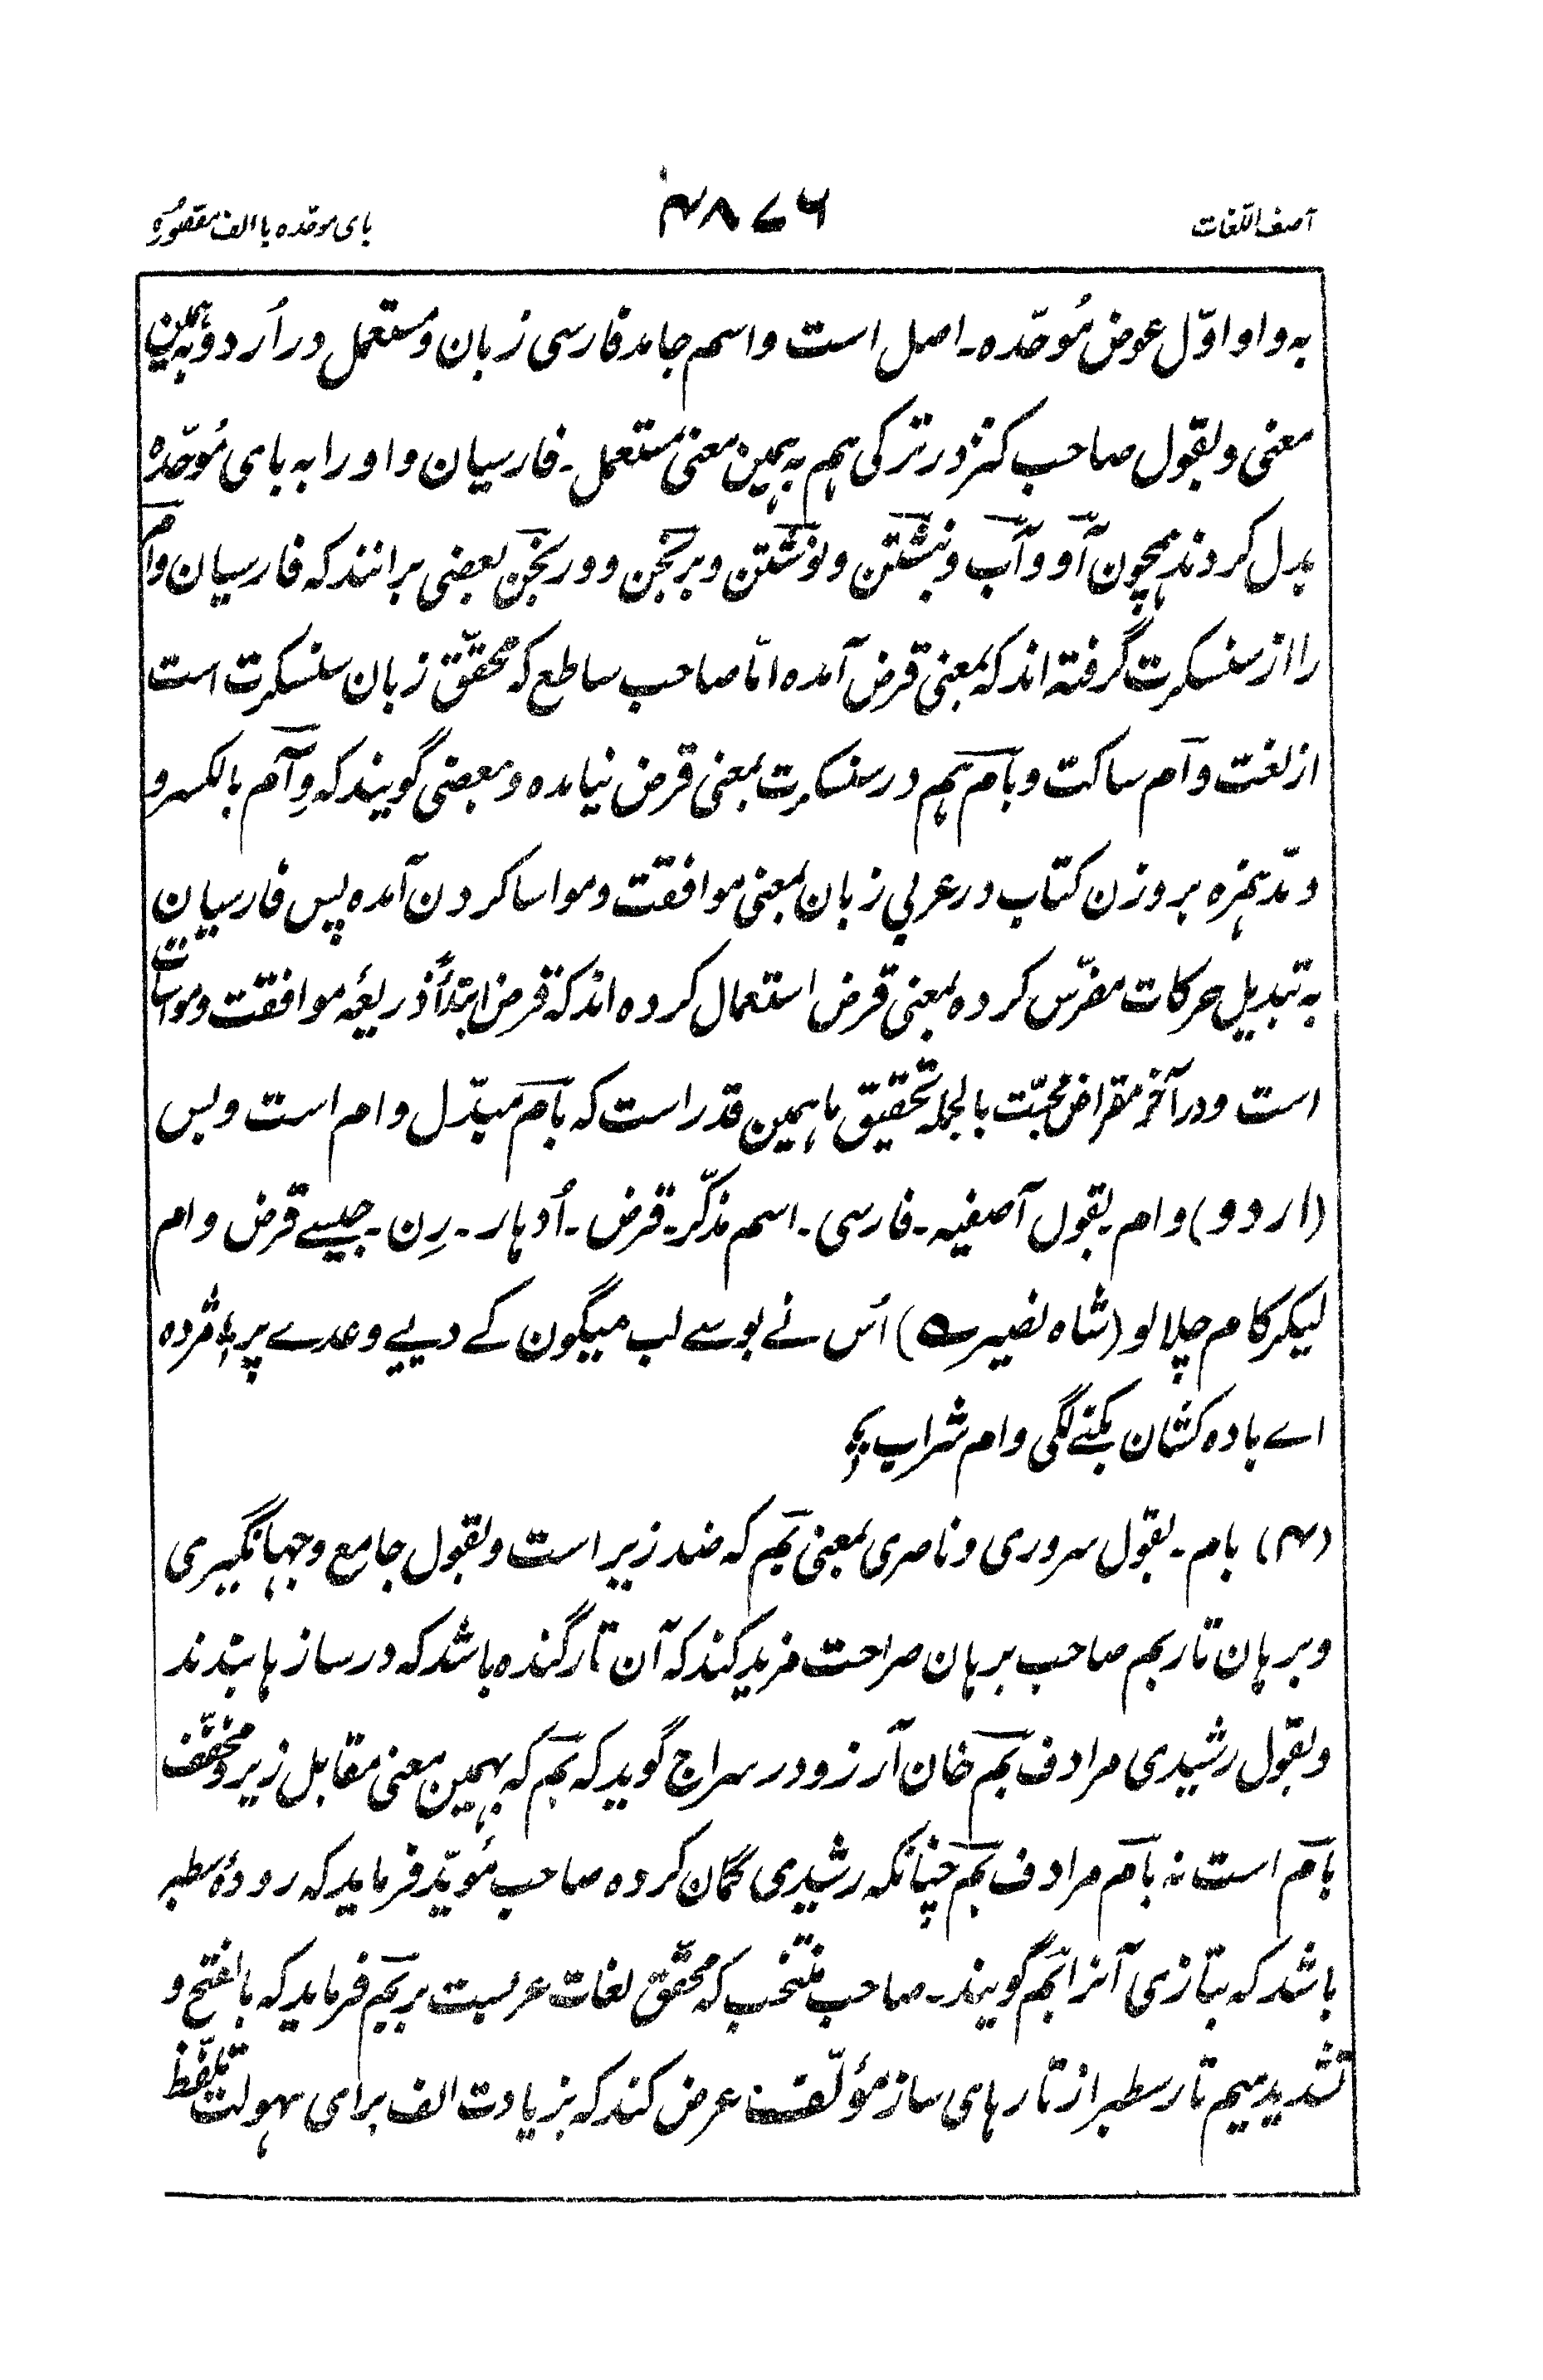 آصف اللغات
۴۸۷۶
بای موحّده با الف مقصورہ
به واو اوّل عوض مُوحّده۔ اصل است و اسم جامد فارسی زبان و مستعمل در اُردو به ہمین
معنی و بقول صاحب کنز در ترکی ہم به ہمین معنی مستعمل۔ فارسیان واو را به بای مُوحّده
بدل کردند ہمچون آو و آب و نبشتن و نوشتن و برنجن و ورنجن بعضی برانند که فارسیان وام
را از سنسکرت گرفته اند که بمعنی قرض آمده امّا صاحب ساطع که محقّق زبان سنسکرت است
از لغت وام ساکت و بام ہم در سنسکرت بمعنی قرض نیامده و بعضی گویند که وِآم بالکسر و
و مدّ ہمزه بروزن کتاب در عربی زبان بمعنی موافقت و مواسا کردن آمده پس فارسیان
به تبدیل حرکات مفرّس کرده بمعنی قرض استعمال کرده اند که قرض ابتدأً ذریعۂ موافقت و مواسات
است و در آخر مقراض محبّت بالجمله تحقیق ما ہمین قدر است که بام مبدّل وام است و بس
(اردو) وام۔ بقول آصفیه۔ فارسی۔ اسم مذکّر۔ قرض۔ اُدہار۔ رِن۔ جیسے قرض وام
لیکر کام چلا لو (شاہ نصیر ؎) اُس نے بوسے لب میگون کے دیے وعدے پر ؛ مژدہ
اے بادہ کشان بکنے لگی وام شراب ؛
(۴) بام۔ بقول سروری و ناصری بمعنی بم که ضد زیر است و بقول جامع و جہانگیری
و برہان تار بم صاحب برہان صراحت مزید کند که آن تار گنده باشد که در سازها بندند
و بقول رشیدی مرادف بم خان آرزو در سراج گوید که بم که بہمین معنی مقابل زیر و مخفّف
بام است نه بام مرادف بم چنانکه رشیدی گمان کرده صاحب مُویّد فرماید که رودۂ سطبر
باشد که بتازی آنرا بم گویند۔ صاحب منتخب که محقّق لغات عربست بر بم فرماید که بالفتح و
تشدید میم تار سطبر از تارهای ساز مؤلّف عرض کند که بزیادت الف برای سہولت تلفّظ